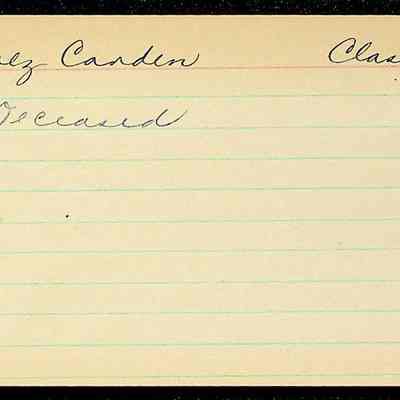 ez Carden Clas
Deceased